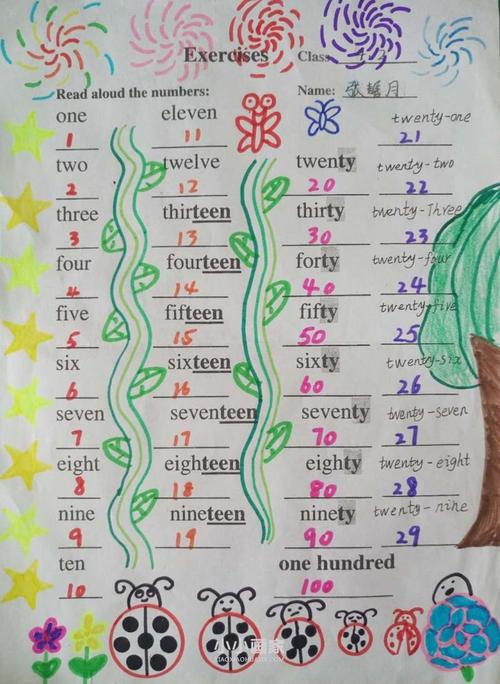 Exercises Class 1.3
Read aloud the numbers: Name:
one eleven twenty-one
1 11 21
two twelve twenty twenty-two
2 12 20 22
three thirteen thirty twenty-Three
3 13 30 23
four fourteen forty twenty-four
4 14 40 24
five fifteen fifty twenty-five
5 15 50 25
six sixteen sixty twenty-six
6 16 60 26
seven seventeen seventy twenty-seven
7 17 70 27
eight eighteen eighty twenty-eight
8 18 80 28
nine nineteen ninety twenty-nine
9 19 90 29
ten one hundred
10 100
小小画家
XIAOXIAOHUAJIA.COM